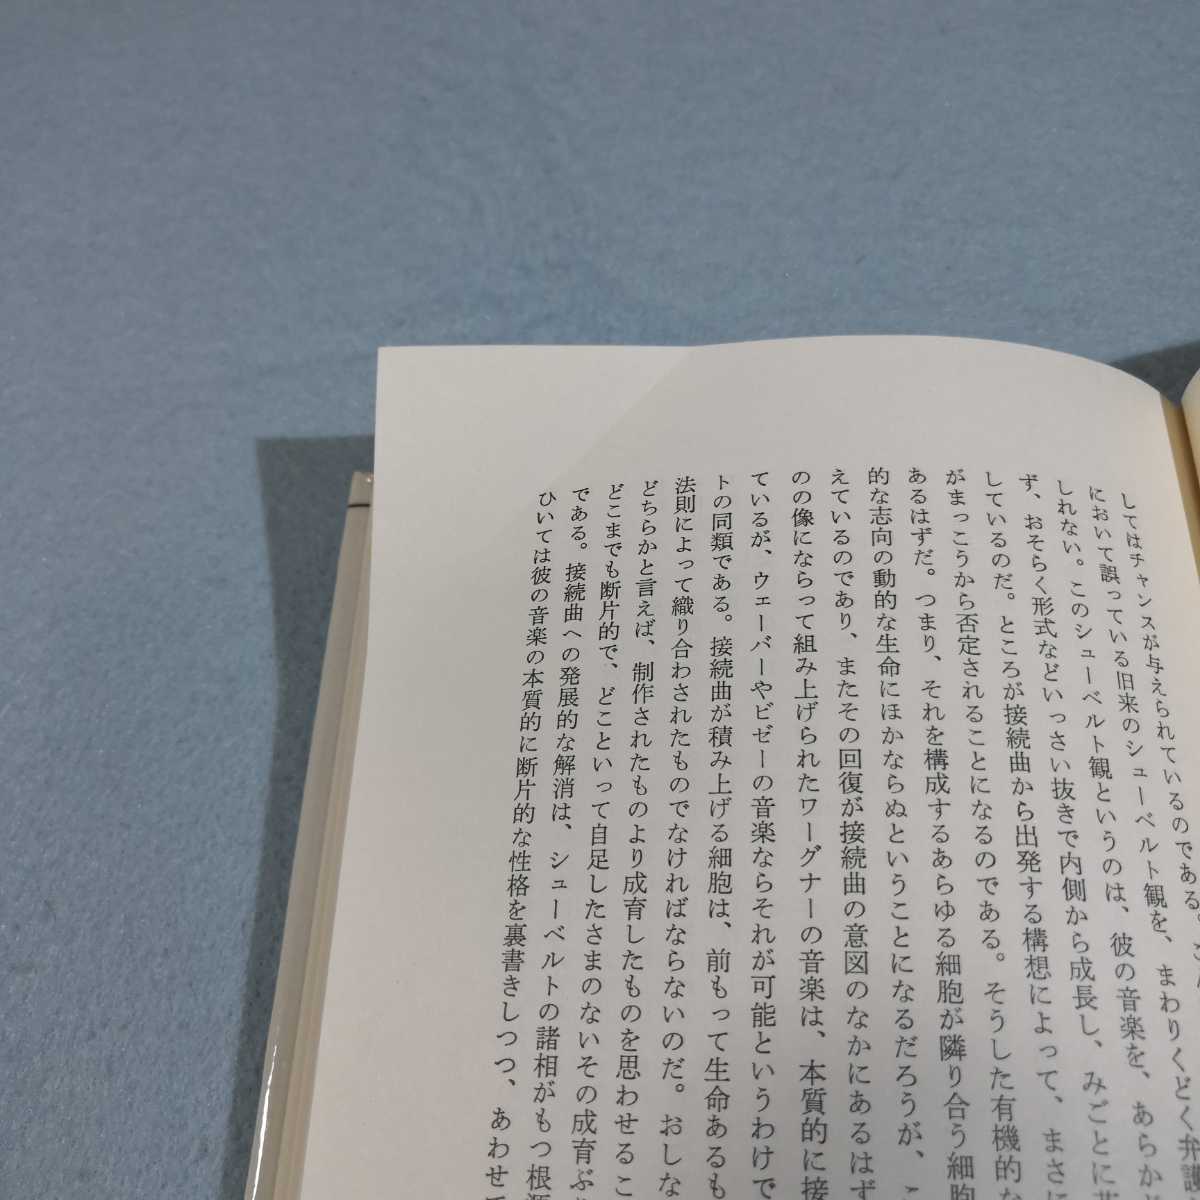 してはチャンスが与えられているのである。こん
において誤っている旧来のシューベルト観を、まわりくどく弁護
しれない。このシューベルト観というのは、彼の音楽を、あらか
ず、おそらく形式などいっさい抜きで内側から成長し、みごとに
しているのだ。ところが接続曲から出発する構想によって、まさに
がまっこうから否定されることになるのである。そうした有機的な
あるはずだ。つまり、それを構成するあらゆる細胞が隣り合う細胞
的な志向の動的な生命にほかならぬということになるだろうが、こ
えているのであり、またその回復が接続曲の意図のなかにあるはず
のの像にならって組み上げられたワーグナーの音楽は、本質的に接
ているが、ウェーバーやビゼーの音楽ならそれが可能というわけで
トの同類である。接続曲が積み上げる細胞は、前もって生命あるも
法則によって織り合わされたものでなければならないのだ。おしな
どちらかと言えば、制作されたものより成育したものを思わせるこ
どこまでも断片的で、どこといって自足したさまのないその成育ぶり
である。接続曲への発展的な解消は、シューベルトの諸相がもつ根源
ひいては彼の音楽の本質的に断片的な性格を裏書きしつつ、あわせて